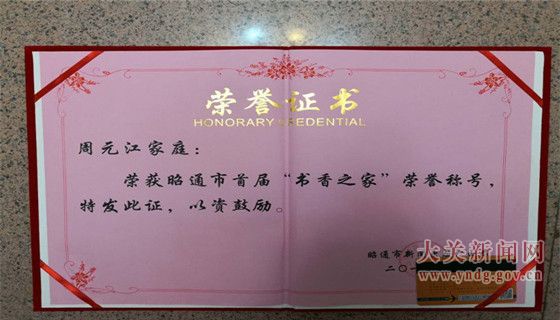 荣誉证书
HONORARY CREDENTIAL
周元江家庭：
荣获昭通市首届“书香之家”荣誉称号，
特发此证，以资鼓励。
昭通市新
二〇一
大关新闻网
www.yndg.gov.cn